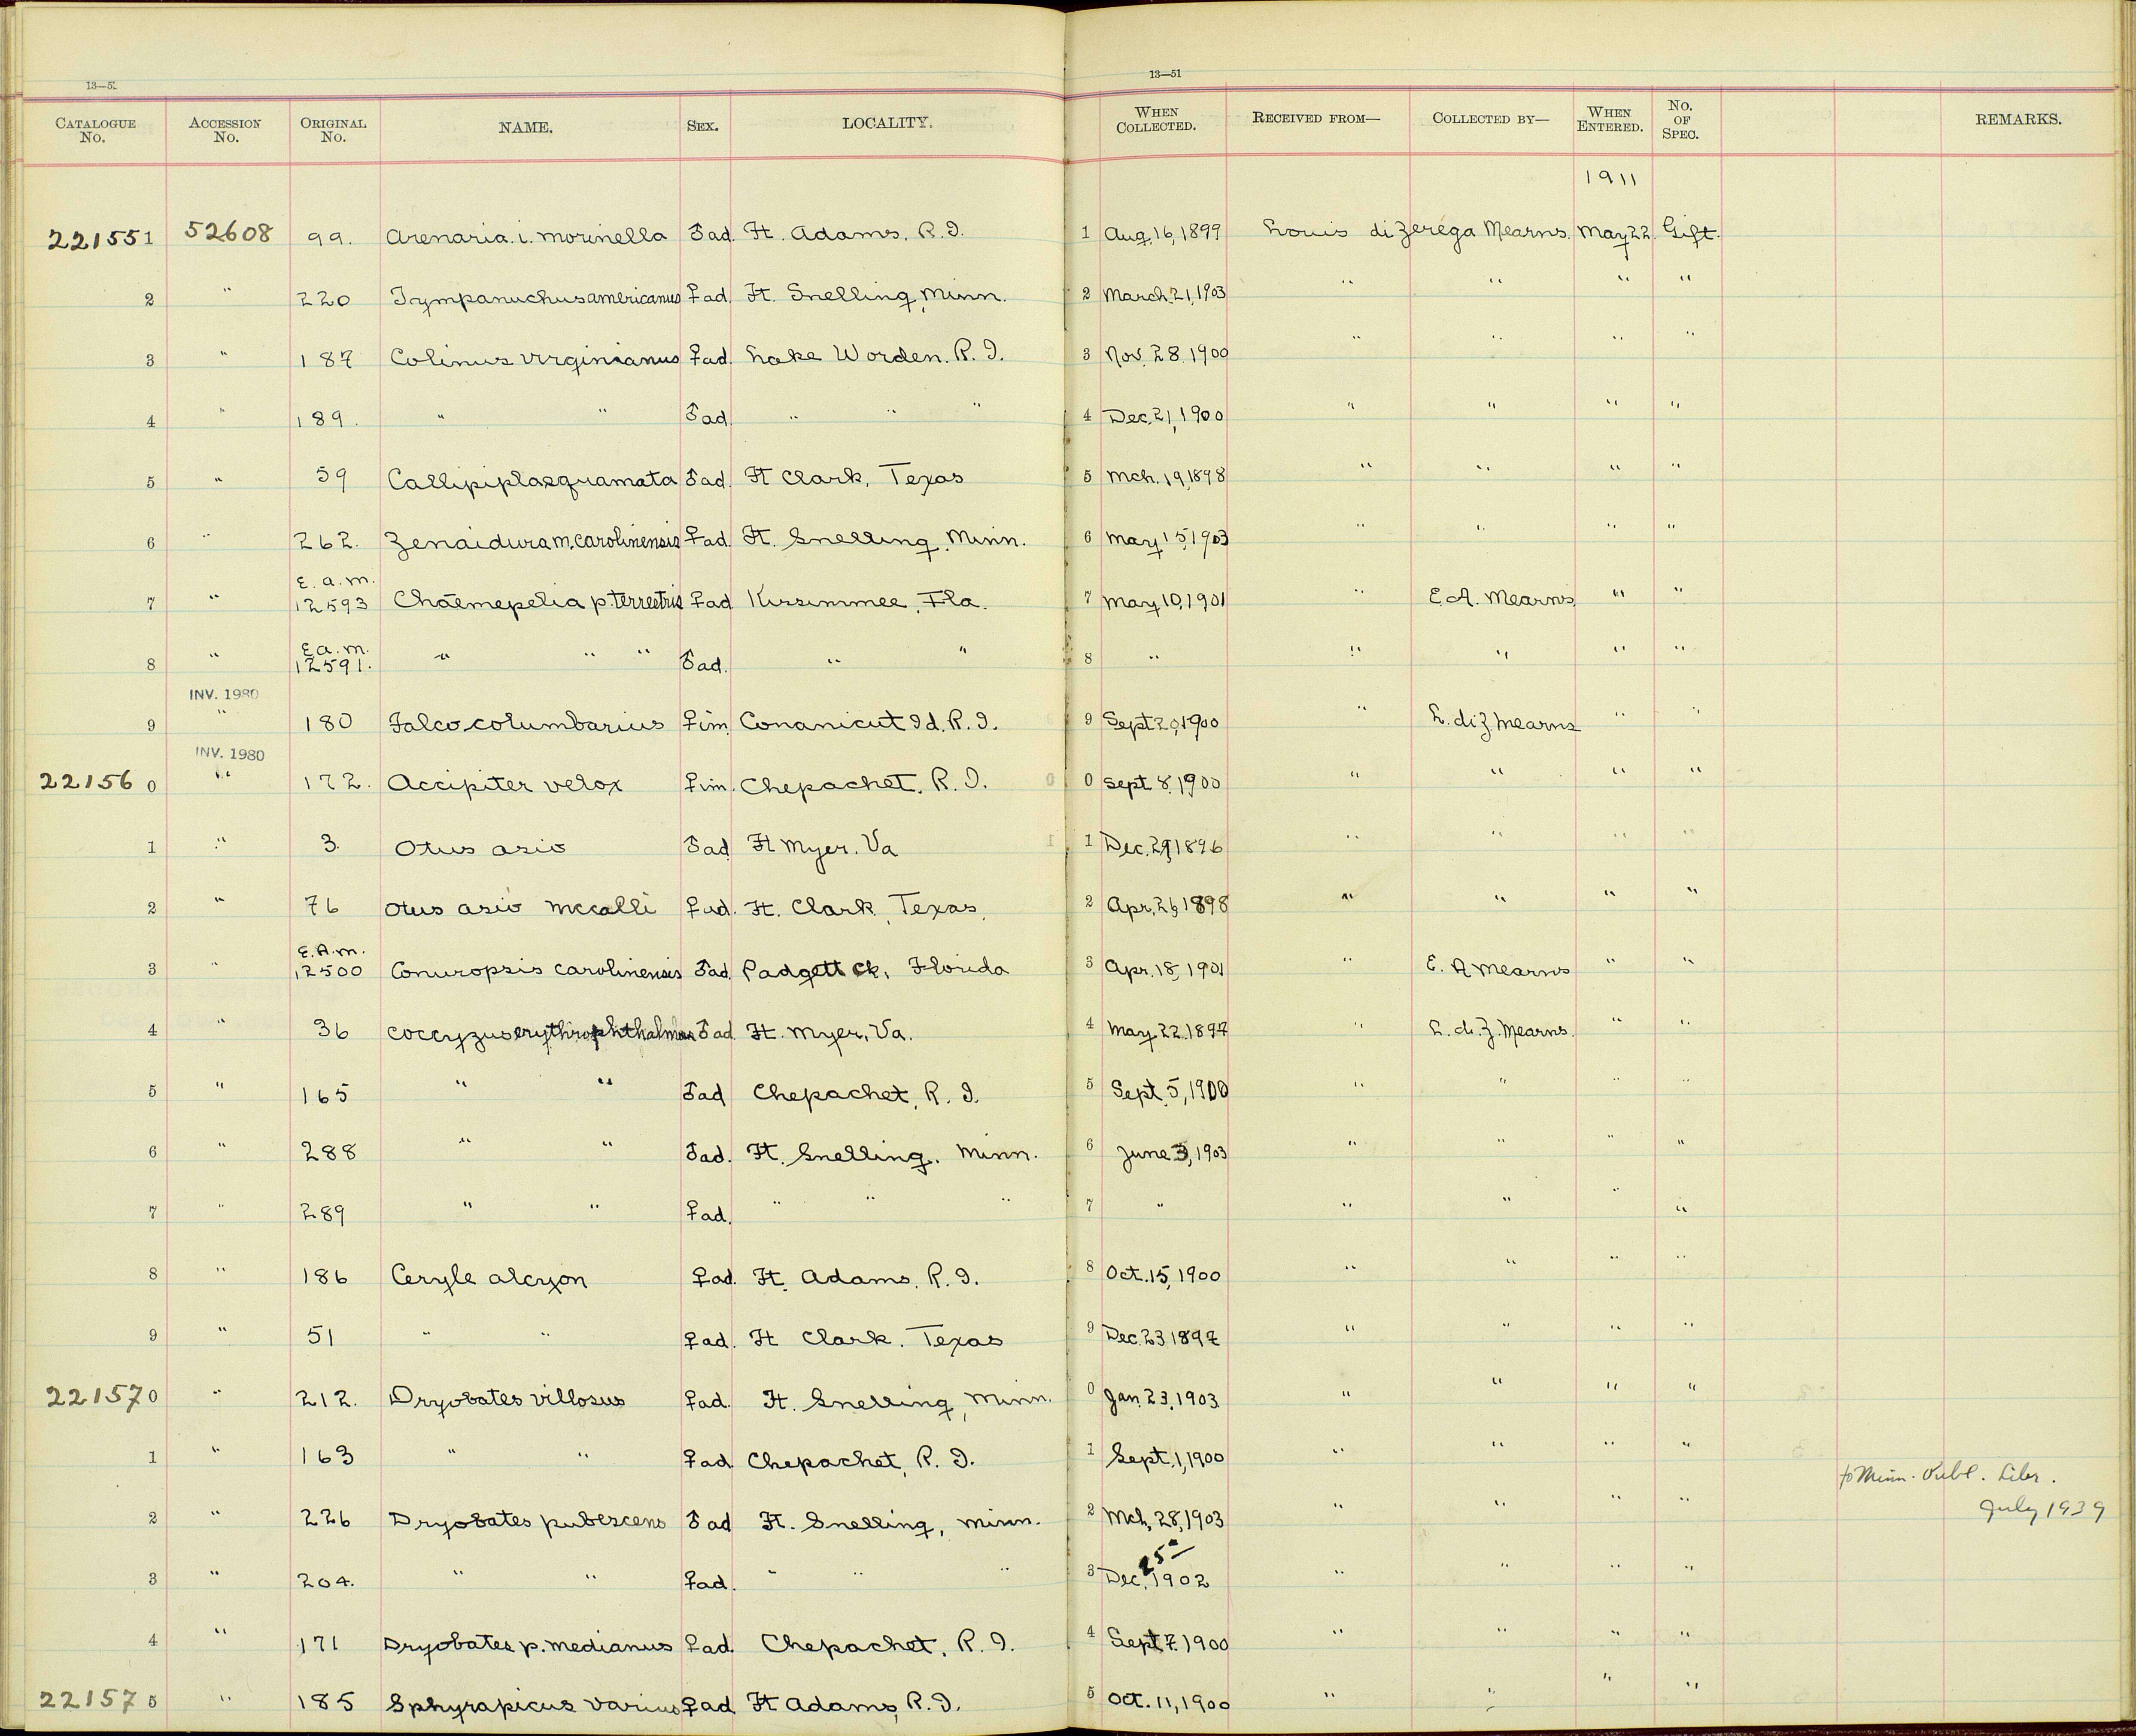 13—5
13—51
CATALOGUE No. ACCESSION No. ORIGINAL No. NAME. SEX. LOCALITY. WHEN COLLECTED. RECEIVED FROM— COLLECTED BY— WHEN ENTERED. No. OF SPEC. REMARKS.
1911
221551 52608 99. Arenaria. i. morinella ♂ ad. Ft. Adams, R.I. 1 Aug. 16, 1899 Louis di Zeréga Mearns. May 22. Gift.
2 " 220 Tympanuchus americanus ♀ ad. Ft. Snelling, Minn. 2 March. 21, 1903 " " " "
3 " 187 Colinus virginianus ♀ ad. Lake Worden. R.I. 3 Nov. 28. 1900 " " " "
4 " 189. " " ♂ ad. " " " 4 Dec. 21, 1900 " " " "
5 " 59 Callipipla squamata ♂ ad. Ft Clark, Texas 5 Mch. 19, 1898 " " " "
6 " 262. Zenaidura m. carolinensis ♀ ad. Ft. Snelling, Minn. 6 May 15, 1903 " " " "
7 " E.a.m. 12593 Chaemepelia p. terrestris ♀ ad Kissimmee, Fla. 7 May 10, 1901 " E.A. Mearns " "
8 " E.a.m. 12591. " " " ♂ ad. " " 8 " " " " "
INV. 1980
9 " 180 Falco columbarius ♀ im. Conanicut Id. R.I. 9 Sept 20, 1900 " L. di Z. Mearns " "
INV. 1980
221560 " 172. Accipiter velox ♀ im. Chepachet, R.I. 0 Sept. 8, 1900 " " " "
1 " 3. Otus asio ♂ ad Ft Myer. Va 1 Dec. 29, 1896 " " " "
2 " 76 Otus asio mccalli ♀ ad. Ft. Clark, Texas. 2 Apr. 26, 1898 " " " "
3 " E.A.m. 12500 Conuropsis carolinensis ♂ ad. Padgett Ck, Florida 3 Apr. 18, 1901 " E. A Mearns " "
4 " 36 Coccyzus erythrophthalmus ♂ ad Ft. Myer, Va. 4 May 22. 1897 " L. di. Z. Mearns. " "
5 " 165 " " ♂ ad Chepachet, R.I. 5 Sept. 5, 1900 " " " "
6 " 288 " " ♂ ad. Ft. Snelling. Minn. 6 June 3, 1903 " " " "
7 " 289 " " ♀ ad. " " " 7 " " " " "
8 " 186 Ceryle alcyon ♀ ad. Ft. Adams, R.I. 8 Oct. 15, 1900 " " " "
9 " 51 " " ♀ ad. Ft Clark. Texas 9 Dec. 23 1897 " " " "
221570 " 212. Dryobates villosus ♀ ad. Ft. Snelling, Minn. 0 Jan. 23, 1903. " " " "
1 " 163 " " ♀ ad. Chepachet, R.I. 1 Sept. 1, 1900 " " " "
to Minn. Publ. Libr.
July 1939
2 " 226 Dryobates pubescens ♂ ad Ft. Snelling, Minn. 2 Mch. 28, 1903 " " " "
3 " 204. " " ♀ ad. " " " 3 Dec. 25 1902 " " " "
4 " 171 Dryobates p. medianus ♀ ad. Chepachet, R.I. 4 Sept 7. 1900 " " " "
221575 " 185 Sphyrapicus varius ♀ ad Ft Adams, R.I. 5 Oct. 11, 1900 " " " "